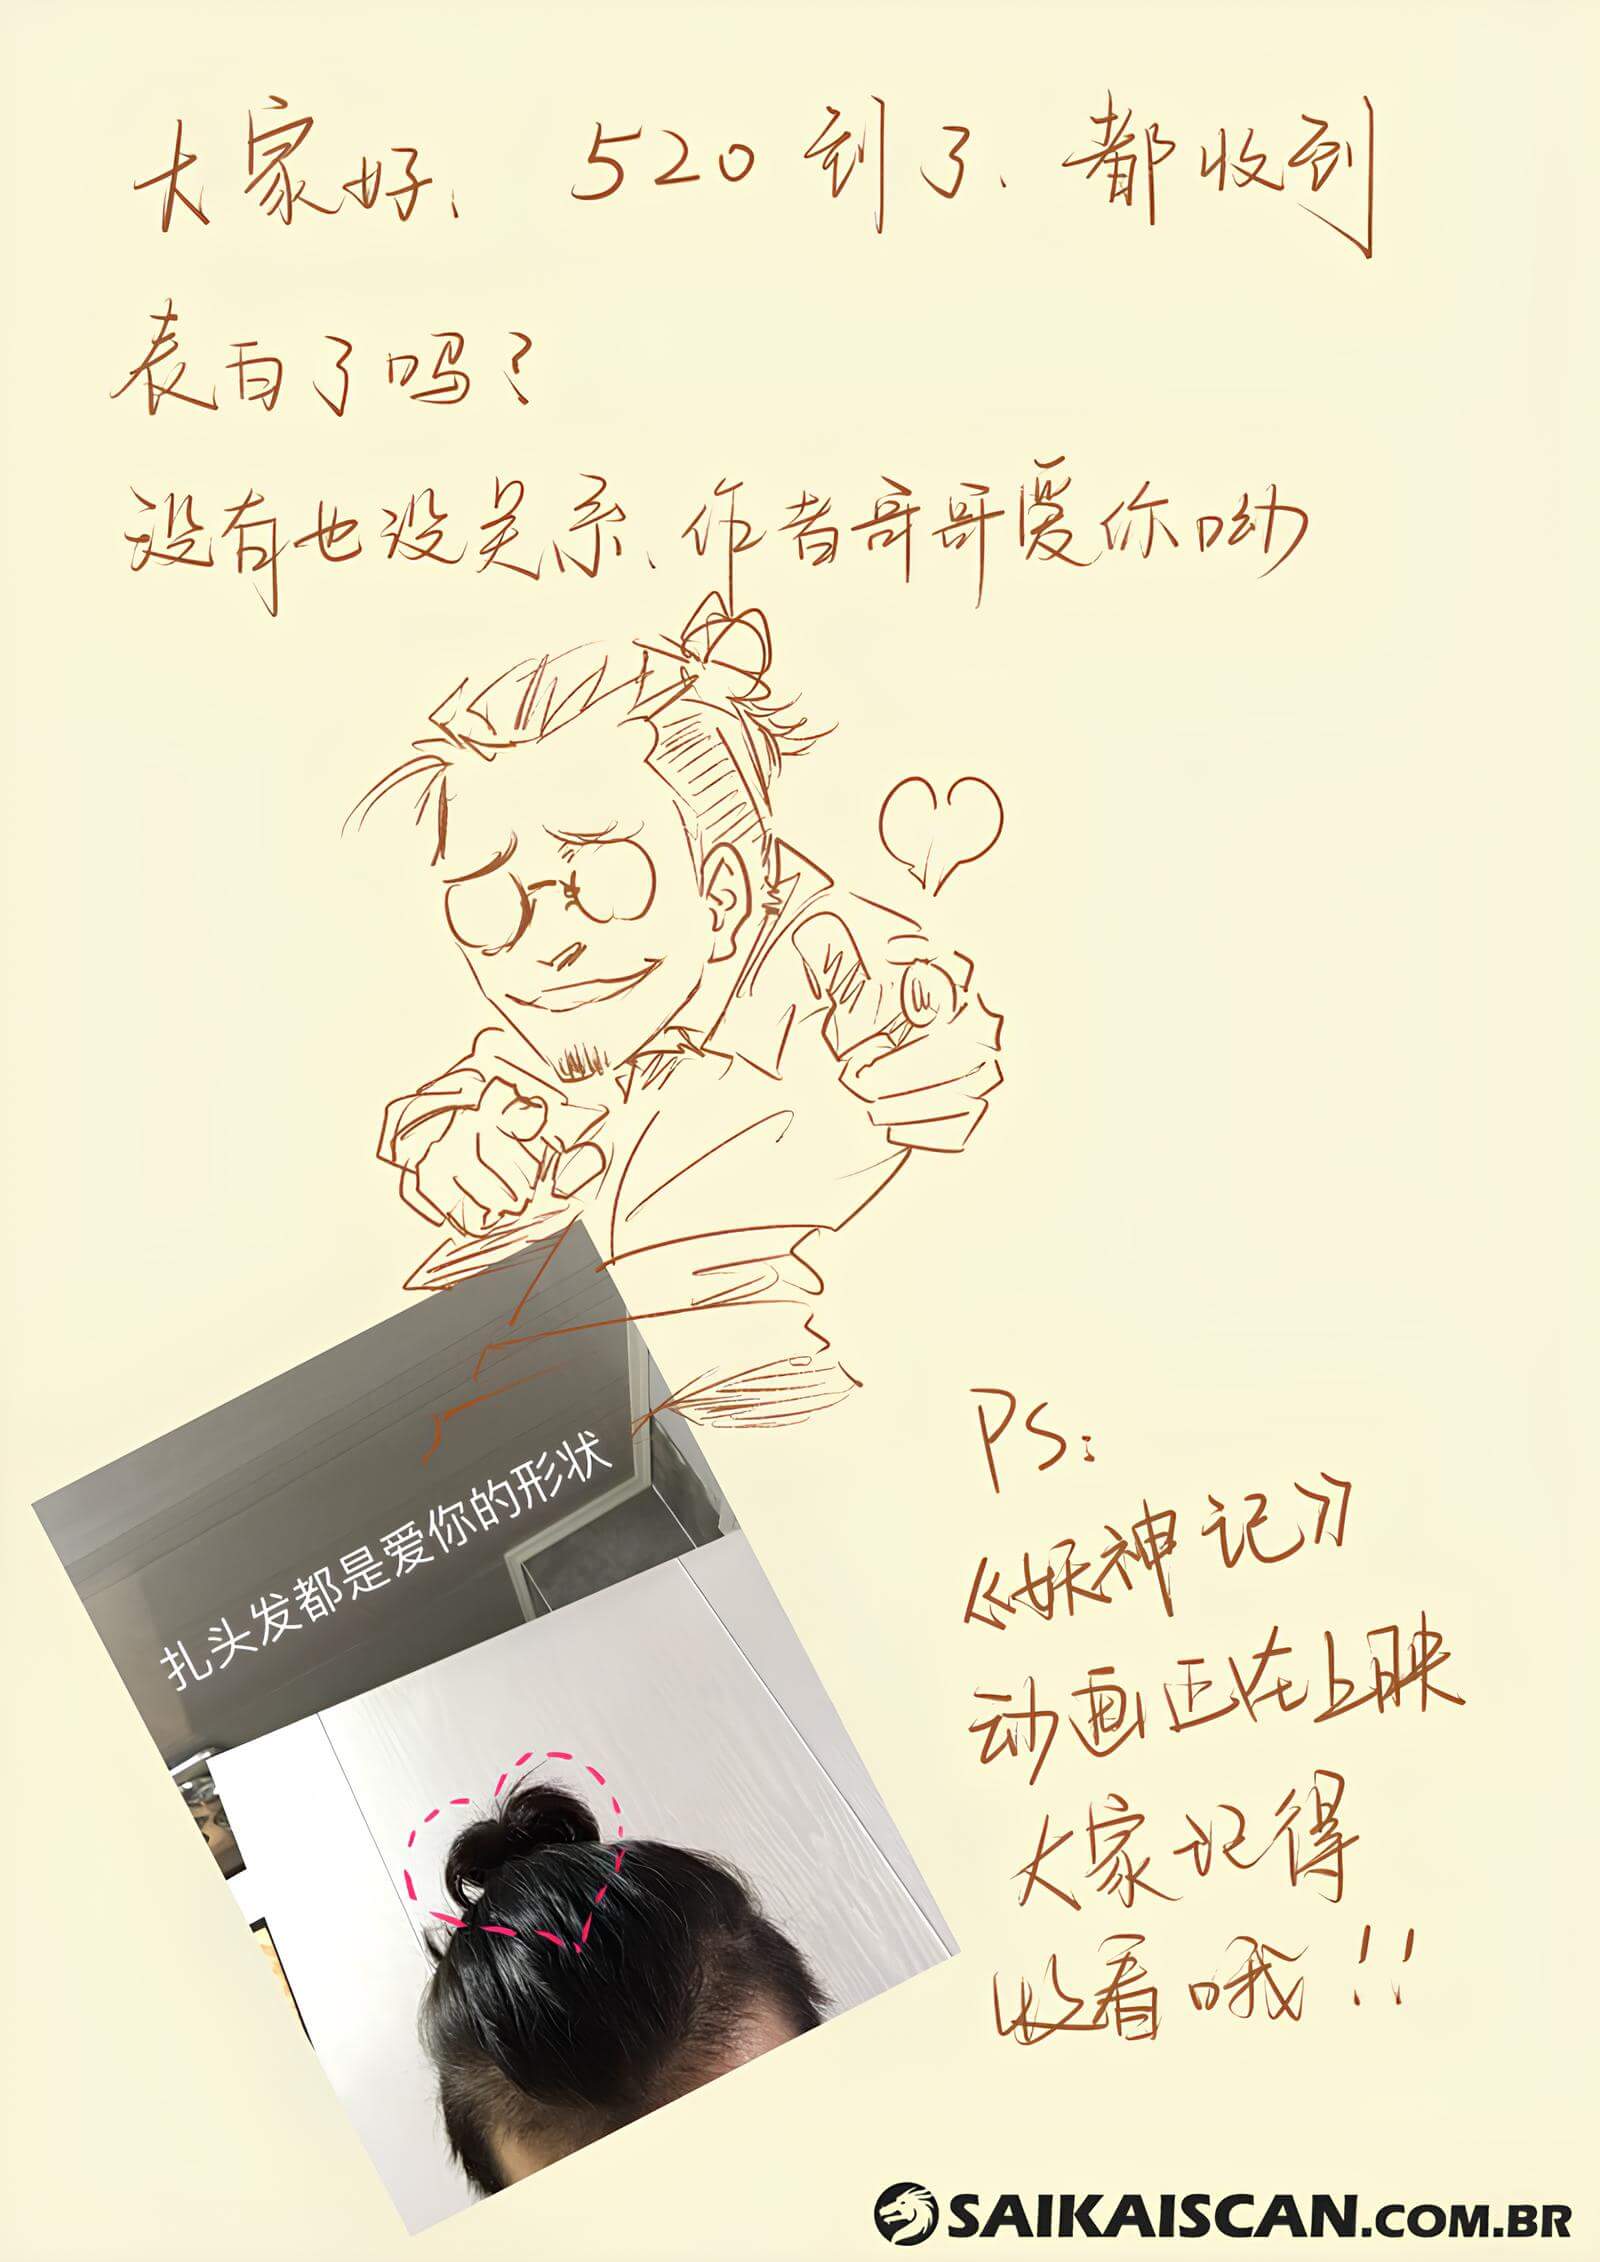 大家好、520到了、都收到
表白了吗?
没有也没关系、作者哥哥爱你呦
扎头发都是爱你的形状
PS:
《妖神记》
动画正在上映
大家记得
收看哦!!
SAIKAISCAN.COM.BR